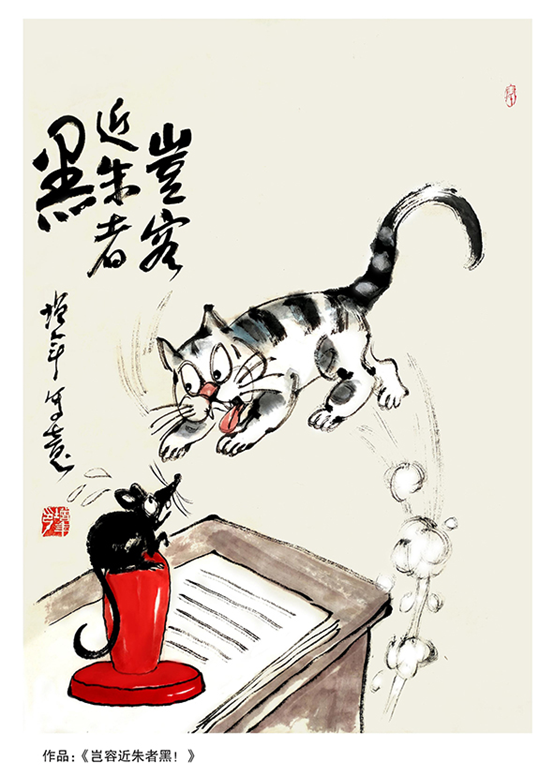 岂容
近朱者
黑
增年写意
作品：《岂容近朱者黑！》